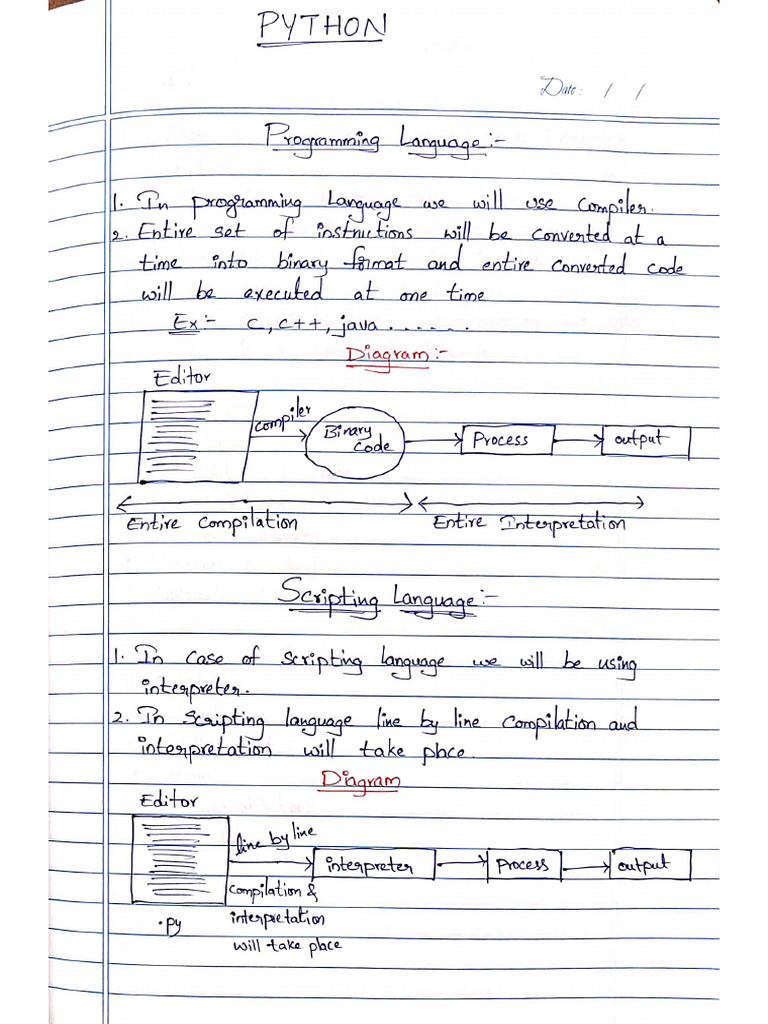 PYTHON
Date: / /
Programming Language:-
1. In programming Language we will use compiler.
2. Entire set of instructions will be converted at a
time into binary format and entire converted code
will be executed at one time
Ex:- C, C++, java.......
Diagram:-
Editor
compiler
Binary
Code
Process
output
Entire Compilation
Entire Interpretation
Scripting Language:-
1. In case of scripting language we will be using
interpreter.
2. In scripting language line by line compilation and
interpretation will take place.
Diagram
Editor
line by line
interpreter
process
output
compilation &
.py
interpretation
will take place